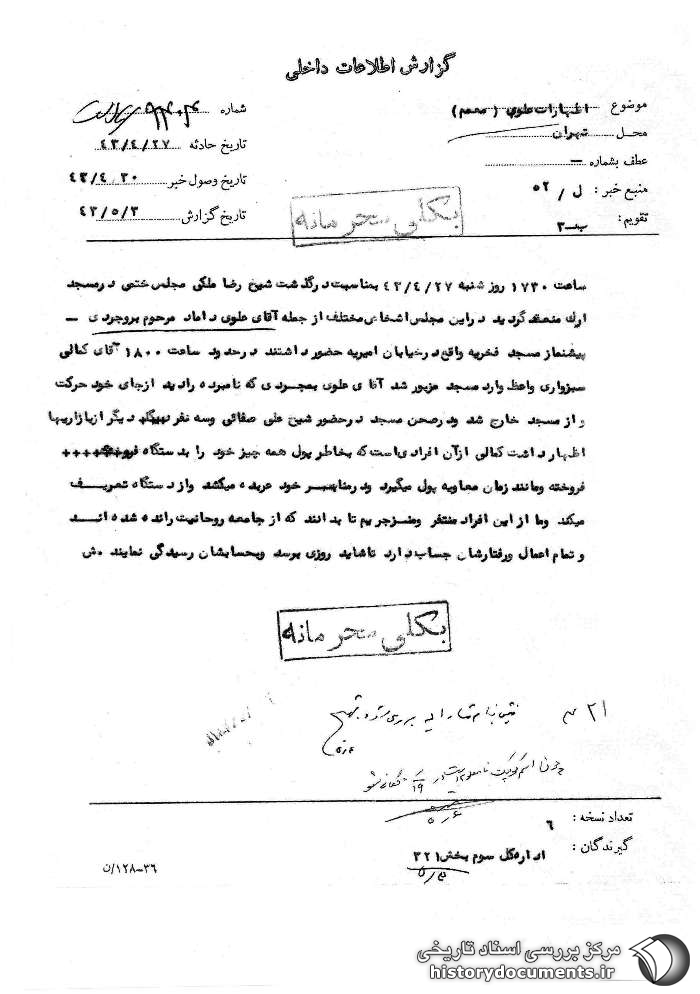 گزارش اطلاعات داخلی
موضوع اظهارات علوی (معمم)
محل تهران
عطف بشماره —
منبع خبر : ل / ۵۲
تقویم : ب-۳
شماره
تاریخ حادثه ۴۳/۴/۲۷
تاریخ وصول خبر ۴۳/۴/۳۰
تاریخ گزارش ۴۳/۵/۳
بکلی محرمانه
ساعت ۱۷۳۰ روز شنبه ۴۳/۴/۲۷ بمناسبت درگذشت شیخ رضا ملکی مجلس ختمی درمسجد
ارك منعقد گردید دراین مجلس اشخاص مختلف از جمله آقای علوی داماد مرحوم بروجردی —
پیشنماز مسجد فخریه واقع درخیابان امیریه حضور داشتند درحدود ساعت ۱۸۰۰ آقای کمالی
سبزواری واعظ وارد مسجد مزبور شد آقای علوی بمجردی که نامبرده رادید ازجای خود حرکت
و از مسجد خارج شد ودرصحن مسجد درحضور شیخ علی صفائی وسه نفر دیگر از بازاریها
اظهار داشت کمالی ازآن افرادی است که بخاطر پول همه چیز خود را بدستگاه
فروخته ومانند زمان معاویه پول میگیرد ودرمنابر خود عربده میکشد واز دستگاه تعریف
میکند وما از این افراد متنفر ومنزجریم تا بدانند که از جامعه روحانیت رانده شده اند
و تمام اعمال ورفتارشان حساب دارد تاشاید روزی برسد وبحسابشان رسیدگی نمایند ش
بکلی محرمانه
تعداد نسخه : ۶
گیرندگان : اداره کل سوم بخش ۳۲۱
۳۶-۱۲۸/ن
مرکز بررسی اسناد تاریخی
historydocuments.ir